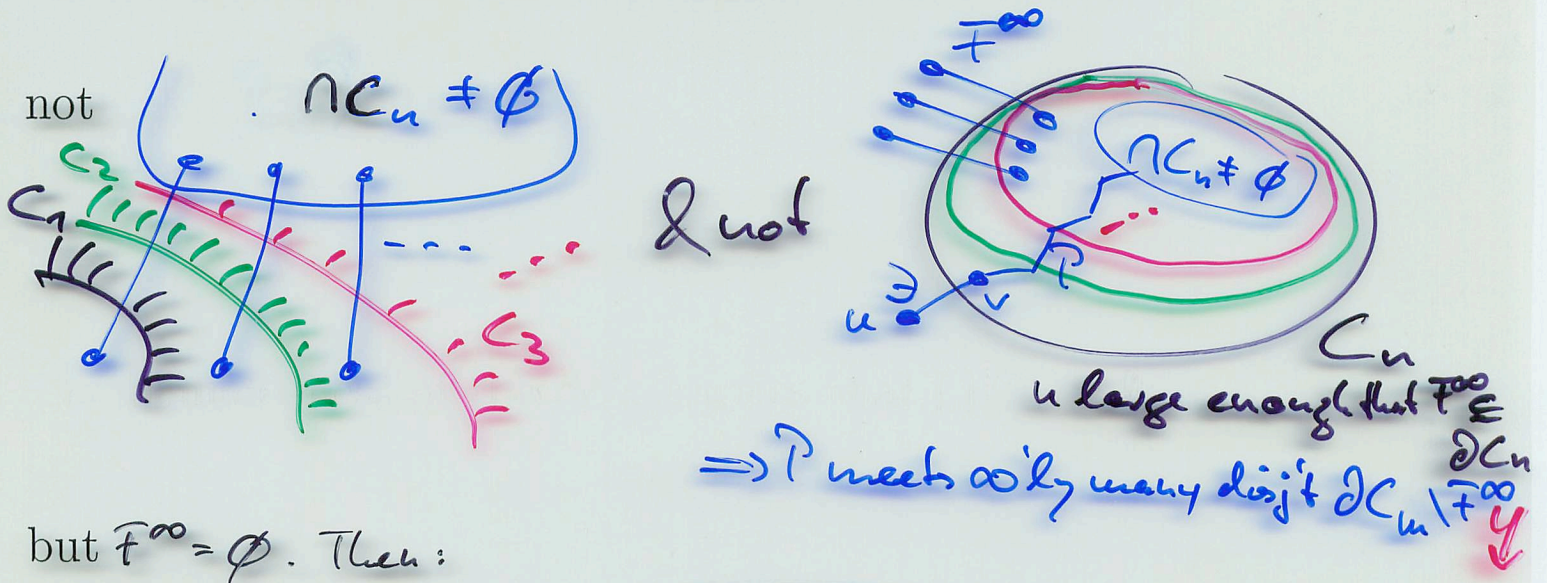 F^∞
not ⋂Cₙ ≠ ∅
C₂
C₁
⋂Cₙ ≠ ∅
& not
∋ P
u v
C₃
Cₙ
n large enough that F^∞ ⊆
∂Cₙ
⇒ P meets ∞'ly many disj't ∂Cₘ\F^∞
but F^∞ = ∅. Then: